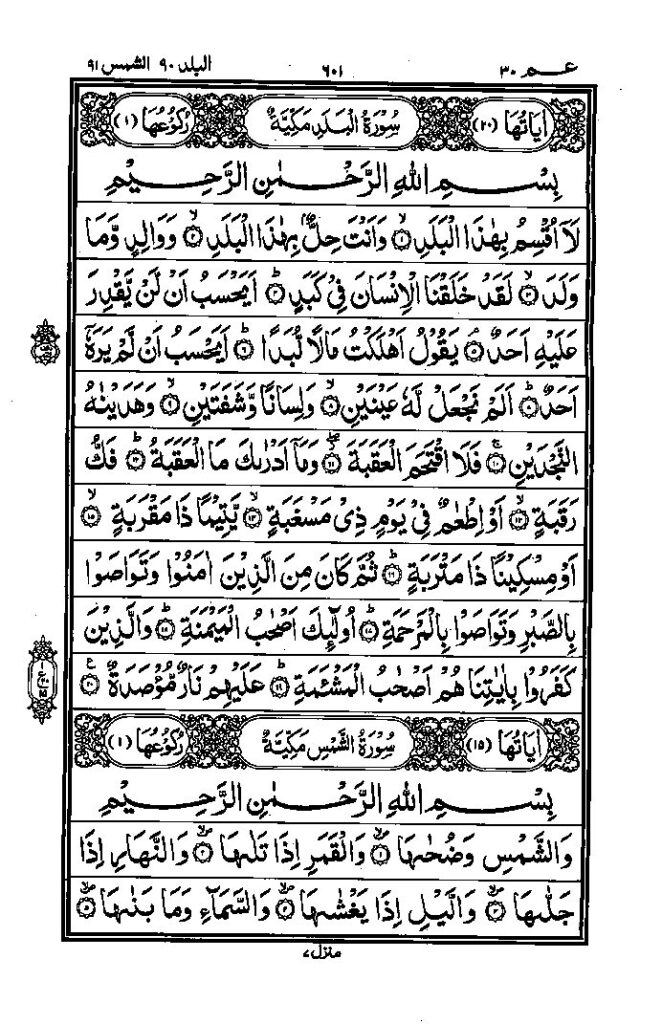 عـم ٣٠ ٦٠١ البلد ٩٠ الشمس ٩١
اٰيَاتُهَا (٢٠) سُوْرَةُ الْبَلَدِ مَكِّيَّةٌ رُكُوْعُهَا (١)
بِسْمِ اللّٰهِ الرَّحْمٰنِ الرَّحِيْمِ
لَآ اُقْسِمُ بِهٰذَا الْبَلَدِ ۙ﴿١﴾ وَاَنْتَ حِلٌّۢ بِهٰذَا الْبَلَدِ ۙ﴿٢﴾ وَوَالِدٍ وَّمَا
وَلَدَ ۙ﴿٣﴾ لَقَدْ خَلَقْنَا الْاِنْسَانَ فِيْ كَبَدٍ ؕ﴿٤﴾ اَيَحْسَبُ اَنْ لَّنْ يَّقْدِرَ
عَلَيْهِ اَحَدٌ ۘ﴿٥﴾ يَقُوْلُ اَهْلَكْتُ مَالًا لُّبَدًا ؕ﴿٦﴾ اَيَحْسَبُ اَنْ لَّمْ يَرَهٗٓ
اَحَدٌ ؕ﴿٧﴾ اَلَمْ نَجْعَلْ لَّهٗ عَيْنَيْنِ ۙ﴿٨﴾ وَلِسَانًا وَّشَفَتَيْنِ ۙ﴿٩﴾ وَهَدَيْنٰهُ
النَّجْدَيْنِ ۚ﴿١٠﴾ فَلَا اقْتَحَمَ الْعَقَبَةَ ۖ﴿١١﴾ وَمَآ اَدْرٰىكَ مَا الْعَقَبَةُ ؕ﴿١٢﴾ فَكُّ
رَقَبَةٍ ۙ﴿١٣﴾ اَوْ اِطْعٰمٌ فِيْ يَوْمٍ ذِيْ مَسْغَبَةٍ ۙ﴿١٤﴾ يَّتِيْمًا ذَا مَقْرَبَةٍ ۙ﴿١٥﴾
اَوْ مِسْكِيْنًا ذَا مَتْرَبَةٍ ؕ﴿١٦﴾ ثُمَّ كَانَ مِنَ الَّذِيْنَ اٰمَنُوْا وَتَوَاصَوْا
بِالصَّبْرِ وَتَوَاصَوْا بِالْمَرْحَمَةِ ؕ﴿١٧﴾ اُولٰٓئِكَ اَصْحٰبُ الْمَيْمَنَةِ ؕ﴿١٨﴾ وَالَّذِيْنَ
كَفَرُوْا بِاٰيٰتِنَا هُمْ اَصْحٰبُ الْمَشْئَمَةِ ؕ﴿١٩﴾ عَلَيْهِمْ نَارٌ مُّؤْصَدَةٌ ۧ﴿٢٠﴾
اٰيَاتُهَا (١٥) سُوْرَةُ الشَّمْسِ مَكِّيَّةٌ رُكُوْعُهَا (١)
بِسْمِ اللّٰهِ الرَّحْمٰنِ الرَّحِيْمِ
وَالشَّمْسِ وَضُحٰىهَا ۪ۙ﴿١﴾ وَالْقَمَرِ اِذَا تَلٰىهَا ۪ۙ﴿٢﴾ وَالنَّهَارِ اِذَا
جَلّٰىهَا ۪ۙ﴿٣﴾ وَالَّيْلِ اِذَا يَغْشٰىهَا ۪ۙ﴿٤﴾ وَالسَّمَآءِ وَمَا بَنٰىهَا ۪ۙ﴿٥﴾
منزل ٧